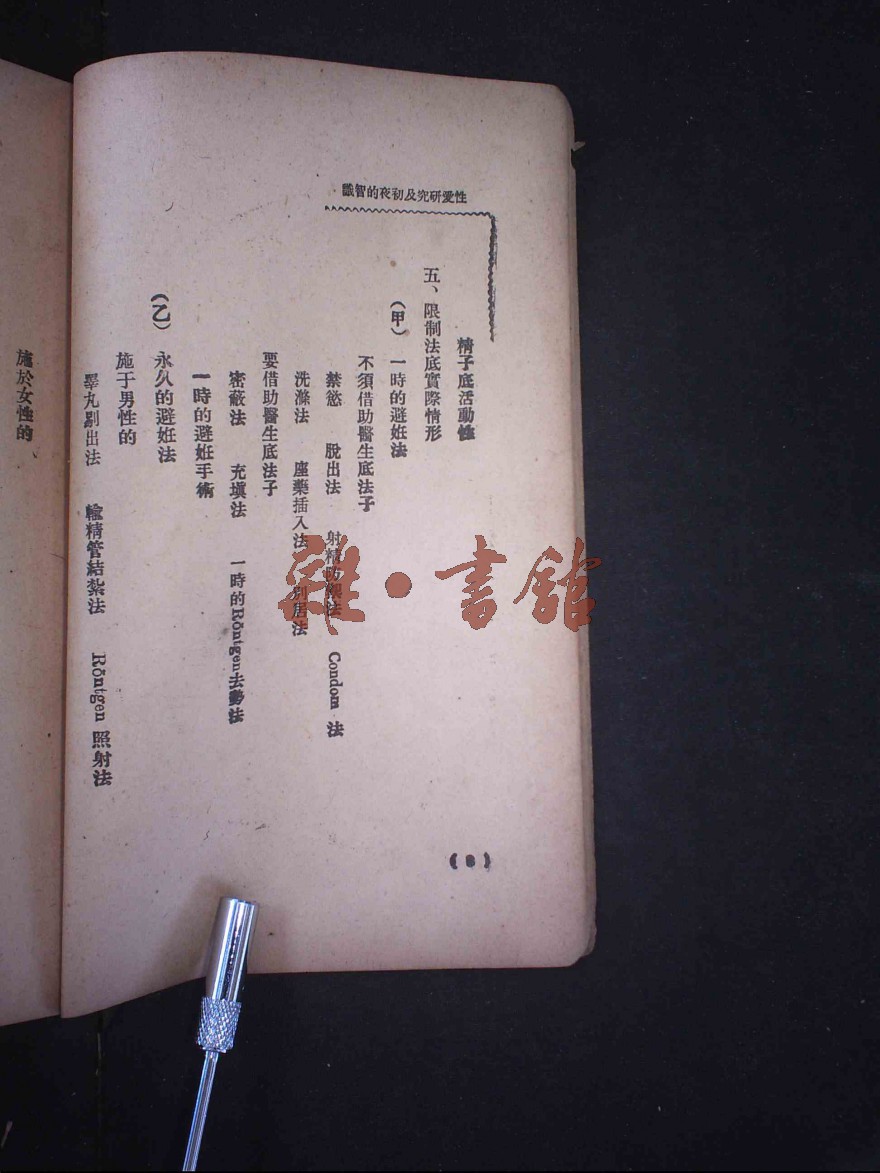 性愛研究及初夜的智識
精子底活動性
五、限制法底實際情形
(甲) 一時的避姙法
不須借助醫生底法子
禁慾 脫出法 射精防禦法 Condom 法
洗滌法 座藥插入法 別居法
要借助醫生底法子
密蔽法 充塡法 一時的Röntgen去勢法
一時的避姙手術
(乙) 永久的避姙法
施于男性的
睪丸剔出法 輸精管結紮法 Röntgen 照射法
施於女性的
雜·書館